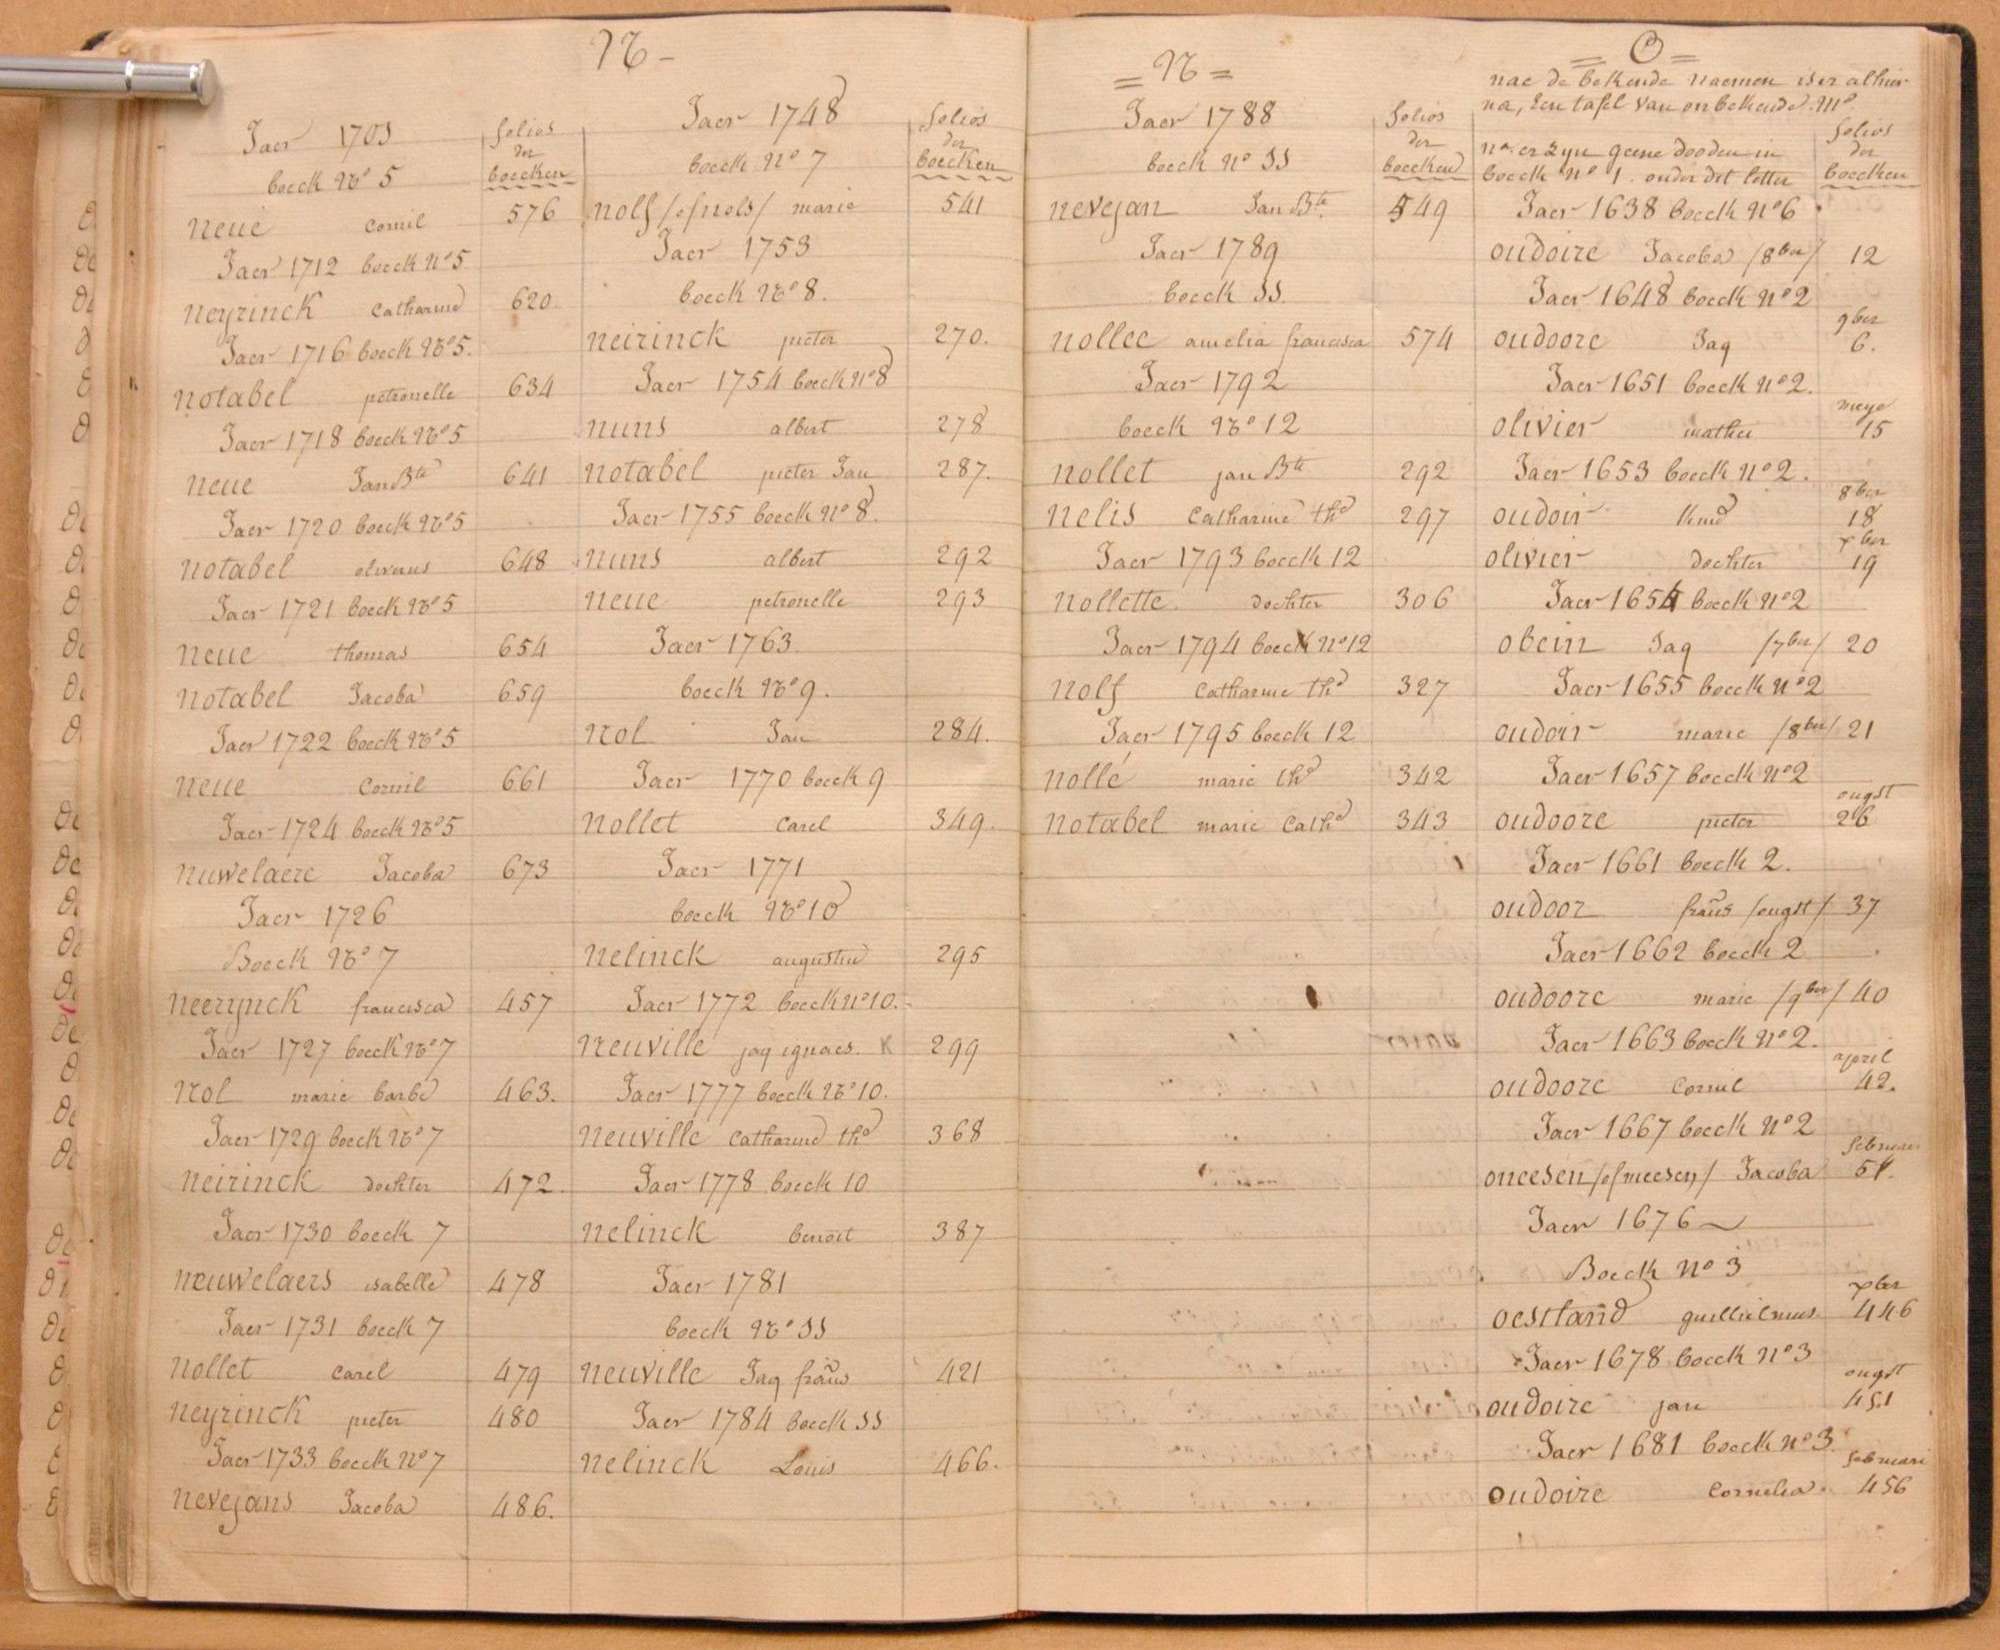 N -
Jaer 1703
folios
der
boecken
boeck No 5
neue cornil 576
Jaer 1712 boeck No 5
neyrinck catharine 620
Jaer 1716 boeck No 5.
notabel petronelle 634
Jaer 1718 boeck No 5
neue Jan Bte 641
Jaer 1720 boeck No 5
notabel oliverus 648
Jaer 1721 boeck No 5
neue thomas 654
notabel Jacoba 659
Jaer 1722 boeck No 5
neue cornil 661
Jaer 1724 boeck No 5
nuwelaere Jacoba 673
Jaer 1726
Boeck No 7
neerynck francisca 457
Jaer 1727 boeck No 7
nol marie barbe 463.
Jaer 1729 boeck No 7
neirinck dochter 472
Jaer 1730 boeck 7
neuwelaers isabelle 478
Jaer 1731 boeck 7
nollet carel 479
neyrinck pieter 480
Jaer 1733 boeck No 7
nevejans Jacoba 486.
Jaer 1748
folios
der
boecken
boeck No 7
nolf /of nols/ marie 541
Jaer 1753
boeck No 8.
neirinck pieter 270.
Jaer 1754 boeck No 8
nuns albert 278
notabel pieter Jan 287.
Jaer 1755 boeck No 8.
nuns albert 292
neue petronelle 293
Jaer 1763
boeck No 9.
nol Jan 284.
Jaer 1770 boeck 9
nollet carel 349.
Jaer 1771
boeck No 10
nelinck augustin 295
Jaer 1772 boeck No 10.
neuville jaq ignaes. K 299
Jaer 1777 boeck No 10.
neuville catharine the 368
Jaer 1778 boeck 10
nelinck benoit 387
Jaer 1781
boeck No 11
neuville Jaq frans 421
Jaer 1784 boeck 11
nelinck Louis 466.
= N =
Jaer 1788
folios
der
boecken
boeck No 11
nevejan Jan Bte. 549
Jaer 1789
boeck 11
nollee amelia francisca 574
Jaer 1792
boeck No 12
nollet jan Bte 292
nelis catharine the 297
Jaer 1793 boeck 12
nollette dochter 306
Jaer 1794 boeck No 12
nolf catharine the 327
Jaer 1795 boeck 12
nollé marie the 342
notabel marie cathe 343
= O =
nae de bekende naemen is er alhier
na, een tafel van onbekende.
na er zyn geene dooden in
boeck No 1. onder dit letter
folios
der
boecken
Jaer 1638 boeck No 6
oudoire Jacoba /8ber/ 12
Jaer 1648 boeck No 2
9ber
oudoore Jaq 6.
Jaer 1651 boeck No 2.
meye
olivier mathei 15
Jaer 1653 boeck No 2.
8ber
oudoir kind 18
xber
olivier dochter 19
Jaer 1654 boeck No 2
obein Jaq /7ber/ 20
Jaer 1655 boeck No 2
oudoir marie /8ber/ 21
Jaer 1657 boeck No 2
ougst
oudoore pieter 26
Jaer 1661 boeck 2.
oudoor frans /ougst/ 37
Jaer 1662 boeck 2
oudoore marie /9ber/ 40
Jaer 1663 boeck No 2.
april
oudoore cornil 42.
Jaer 1667 boeck No 2
februari
oneesen /of meesen/ Jacoba 51.
Jaer 1676
Boeck No 3
xber
oestland guillielmus. 446
Jaer 1678 boeck No 3
ougst
oudoire jan 451
Jaer 1681 boeck No 3
februari
oudoire cornelia 456